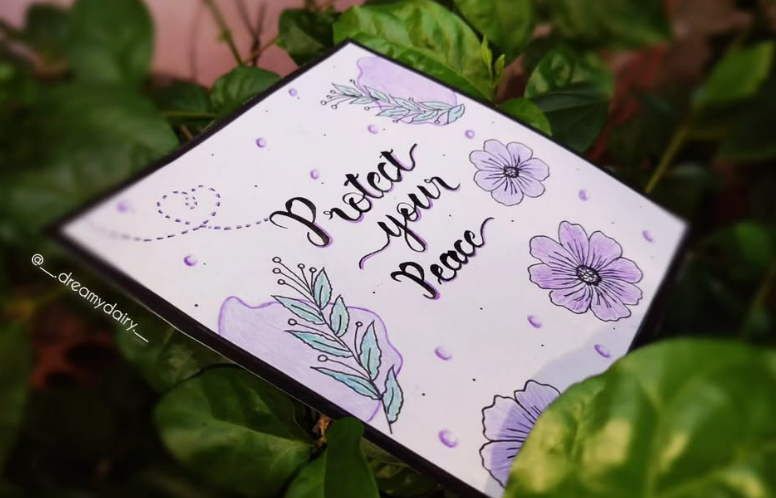 Protect
your
Peace
@__.dreamydairy__